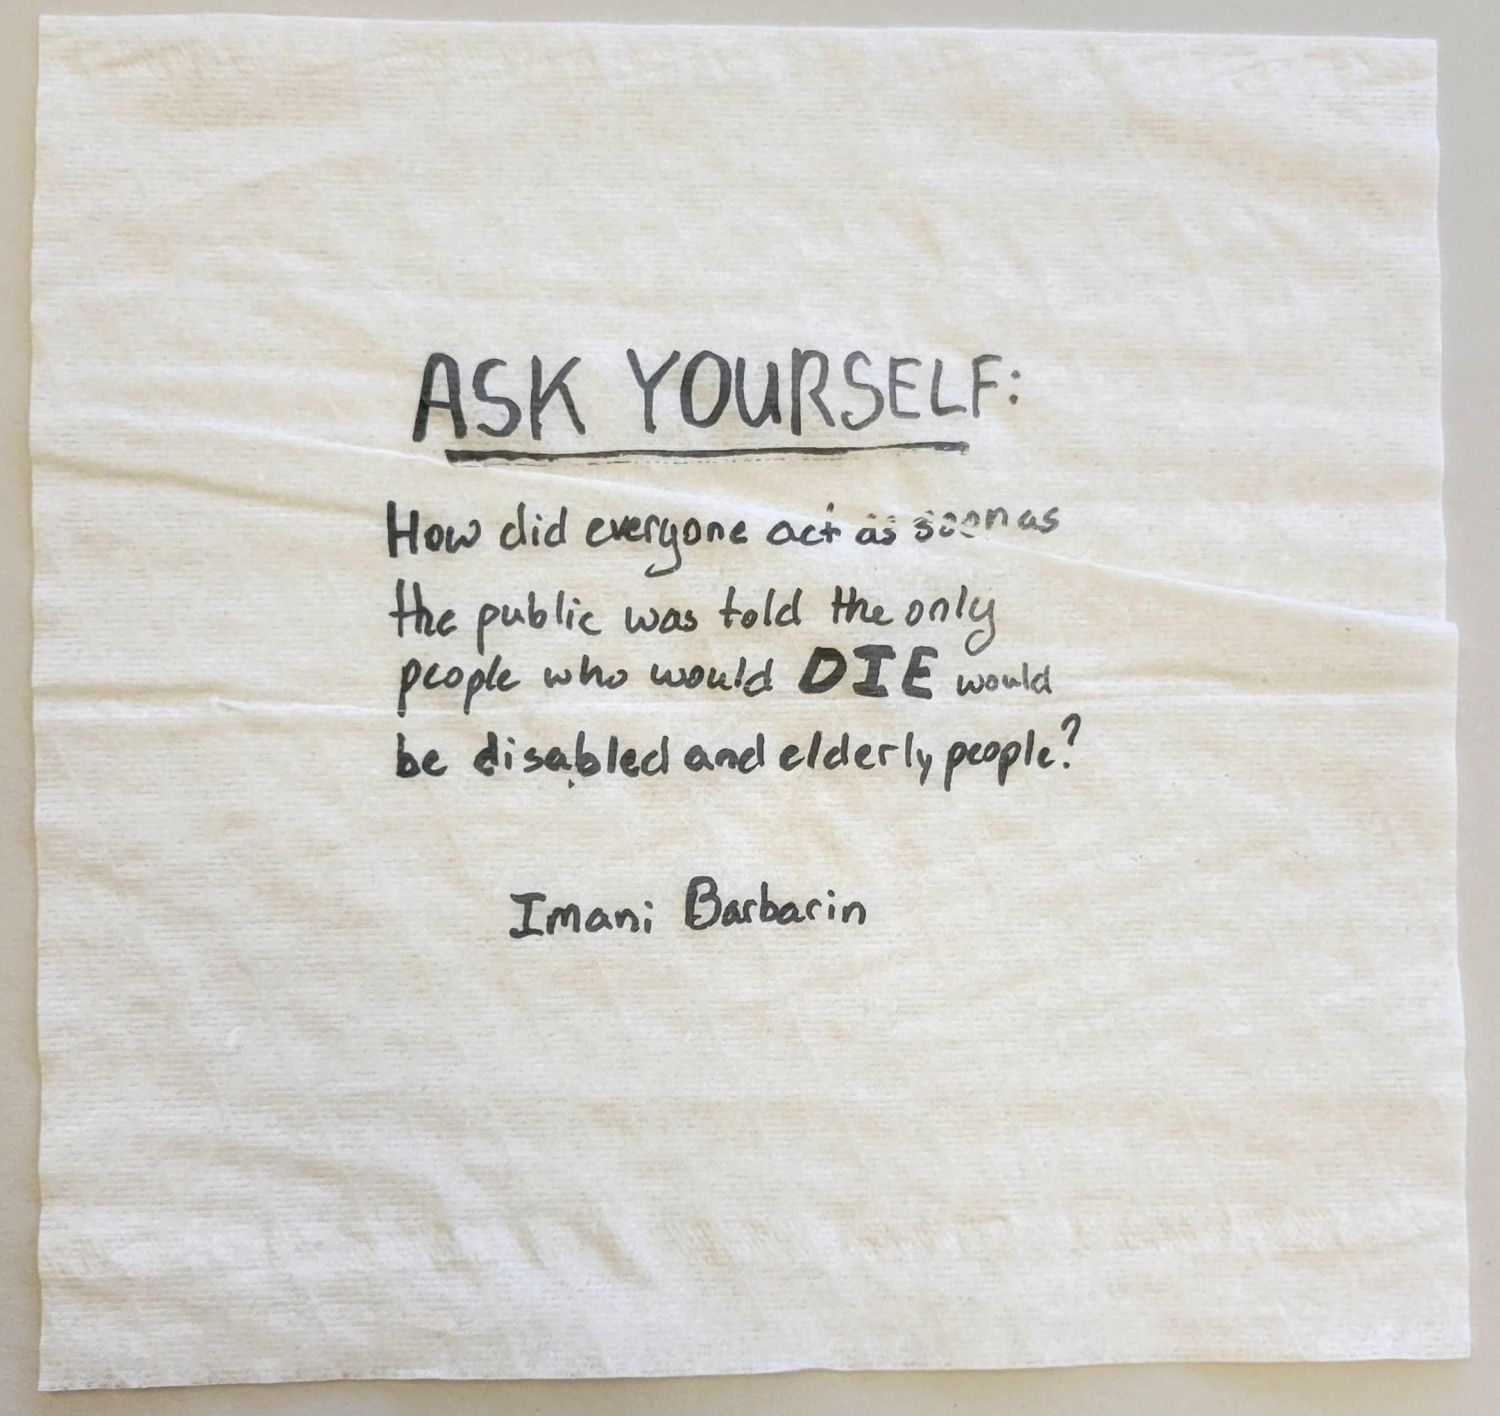 ASK YOURSELF:
How did everyone act as soon as
the public was told the only
people who would DIE would
be disabled and elderly people?
Imani Barbarin